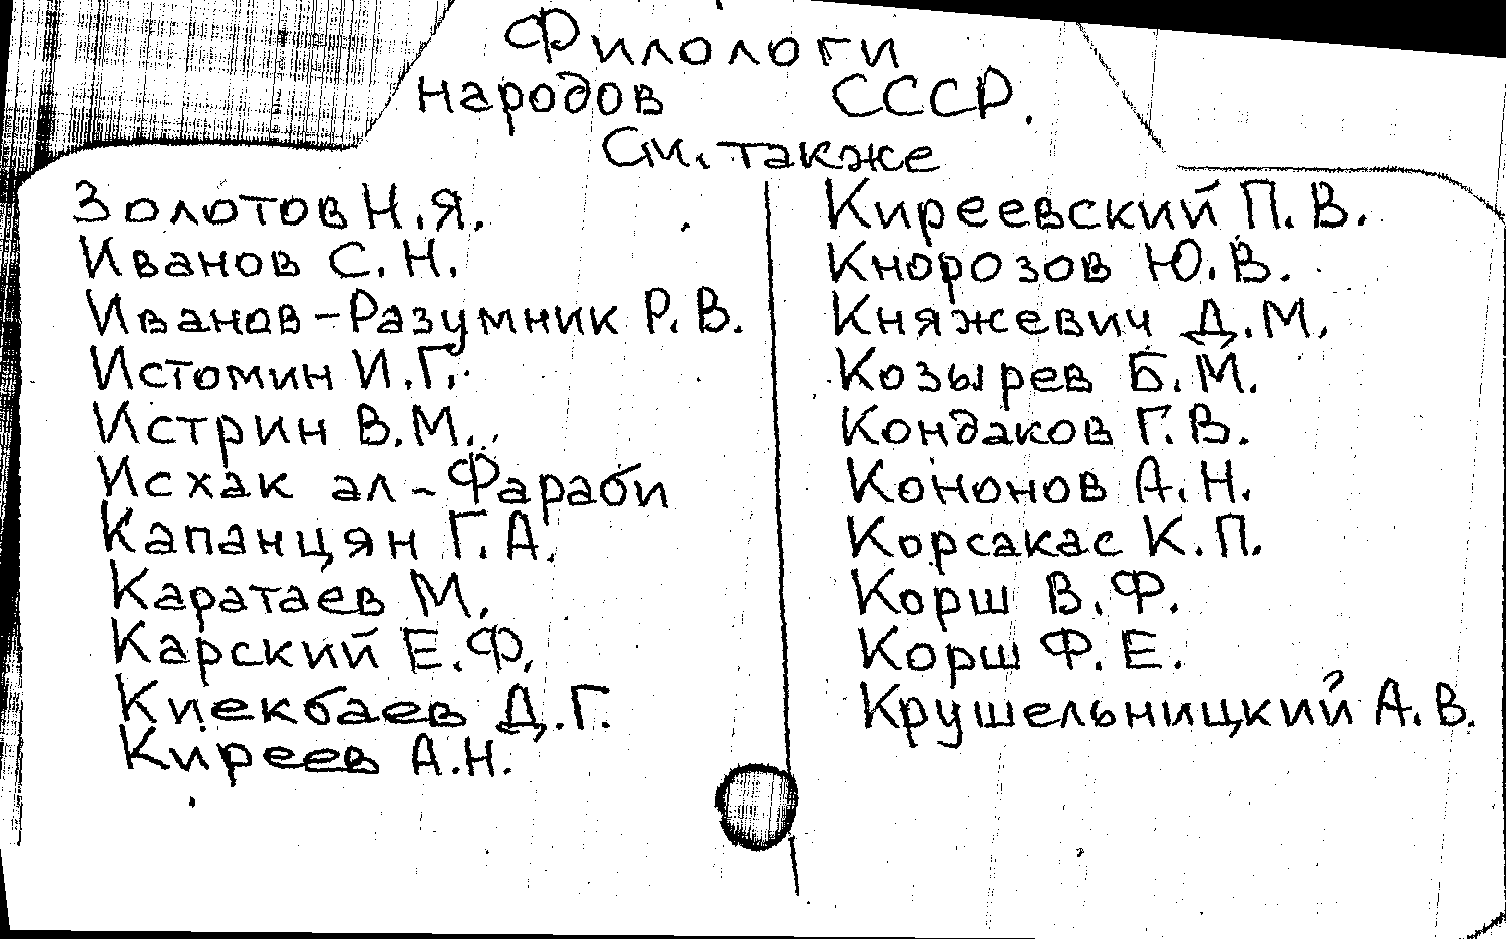 Филологи
народов СССР.
См. также
Золотов Н.Я.
Иванов С.Н.
Иванов-Разумник Р.В.
Истомин И.Г.
Истрин В.М.
Исхак ал-Фараби
Капанцян Г.А.
Каратаев М.
Карский Е.Ф.
Киекбаев Д.Г.
Киреев А.Н.
Киреевский П.В.
Кнорозов Ю.В.
Княжевич Д.М.
Козырев Б.М.
Кондаков Г.В.
Кононов А.Н.
Корсакас К.П.
Корш В.Ф.
Корш Ф.Е.
Крушельницкий А.В.